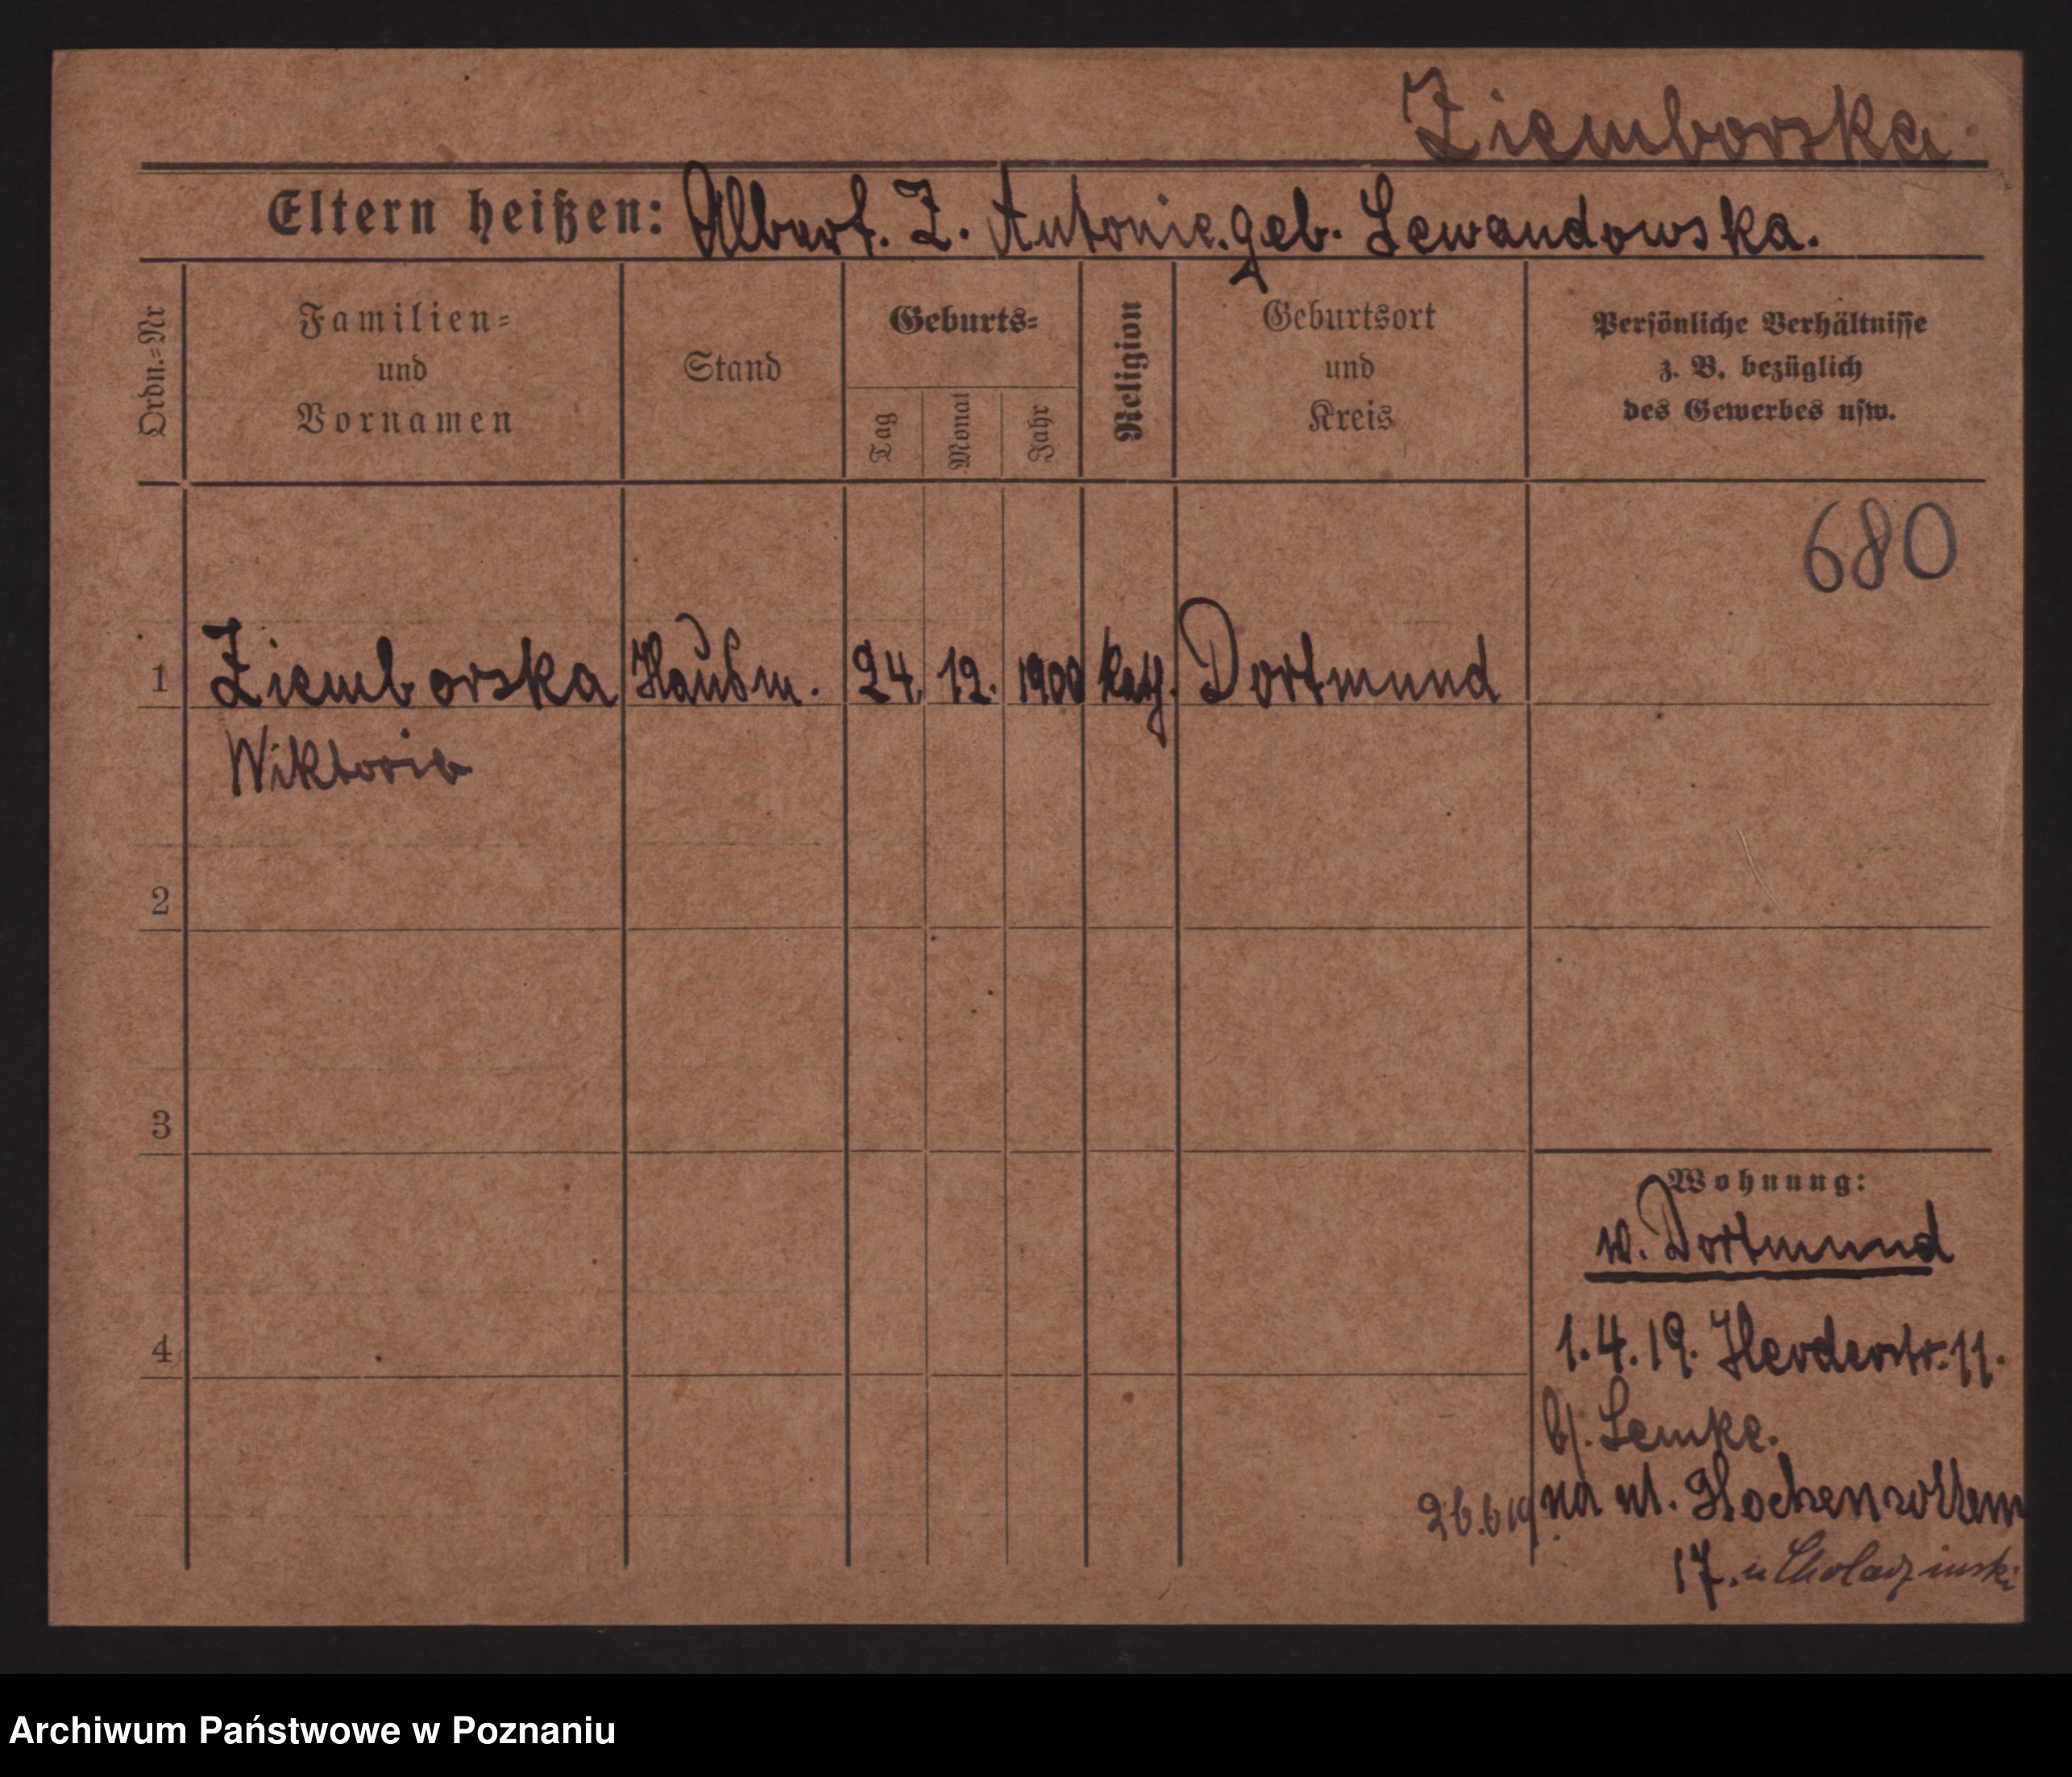 Ziemborska
Eltern heißen: Albert. Z. Antonie. geb. Lewandowska.
Ordn.=Nr
Familien=
und
Vornamen
Stand
Geburts=
Tag
Monat
Jahr
Religion
Geburtsort
und
Kreis
Persönliche Verhältnisse
z. B. bezüglich
des Gewerbes usw.
680
1 Ziemborska Hausm. 24. 12. 1900 kath. Dortmund
Wiktoria
2
3
4
Wohnung:
w. Dortmund
1.4.19. Herderstr. 11.
b/. Lemke.
26.6 19 na ul. Hochenzollern
17. u
Archiwum Państwowe w Poznaniu